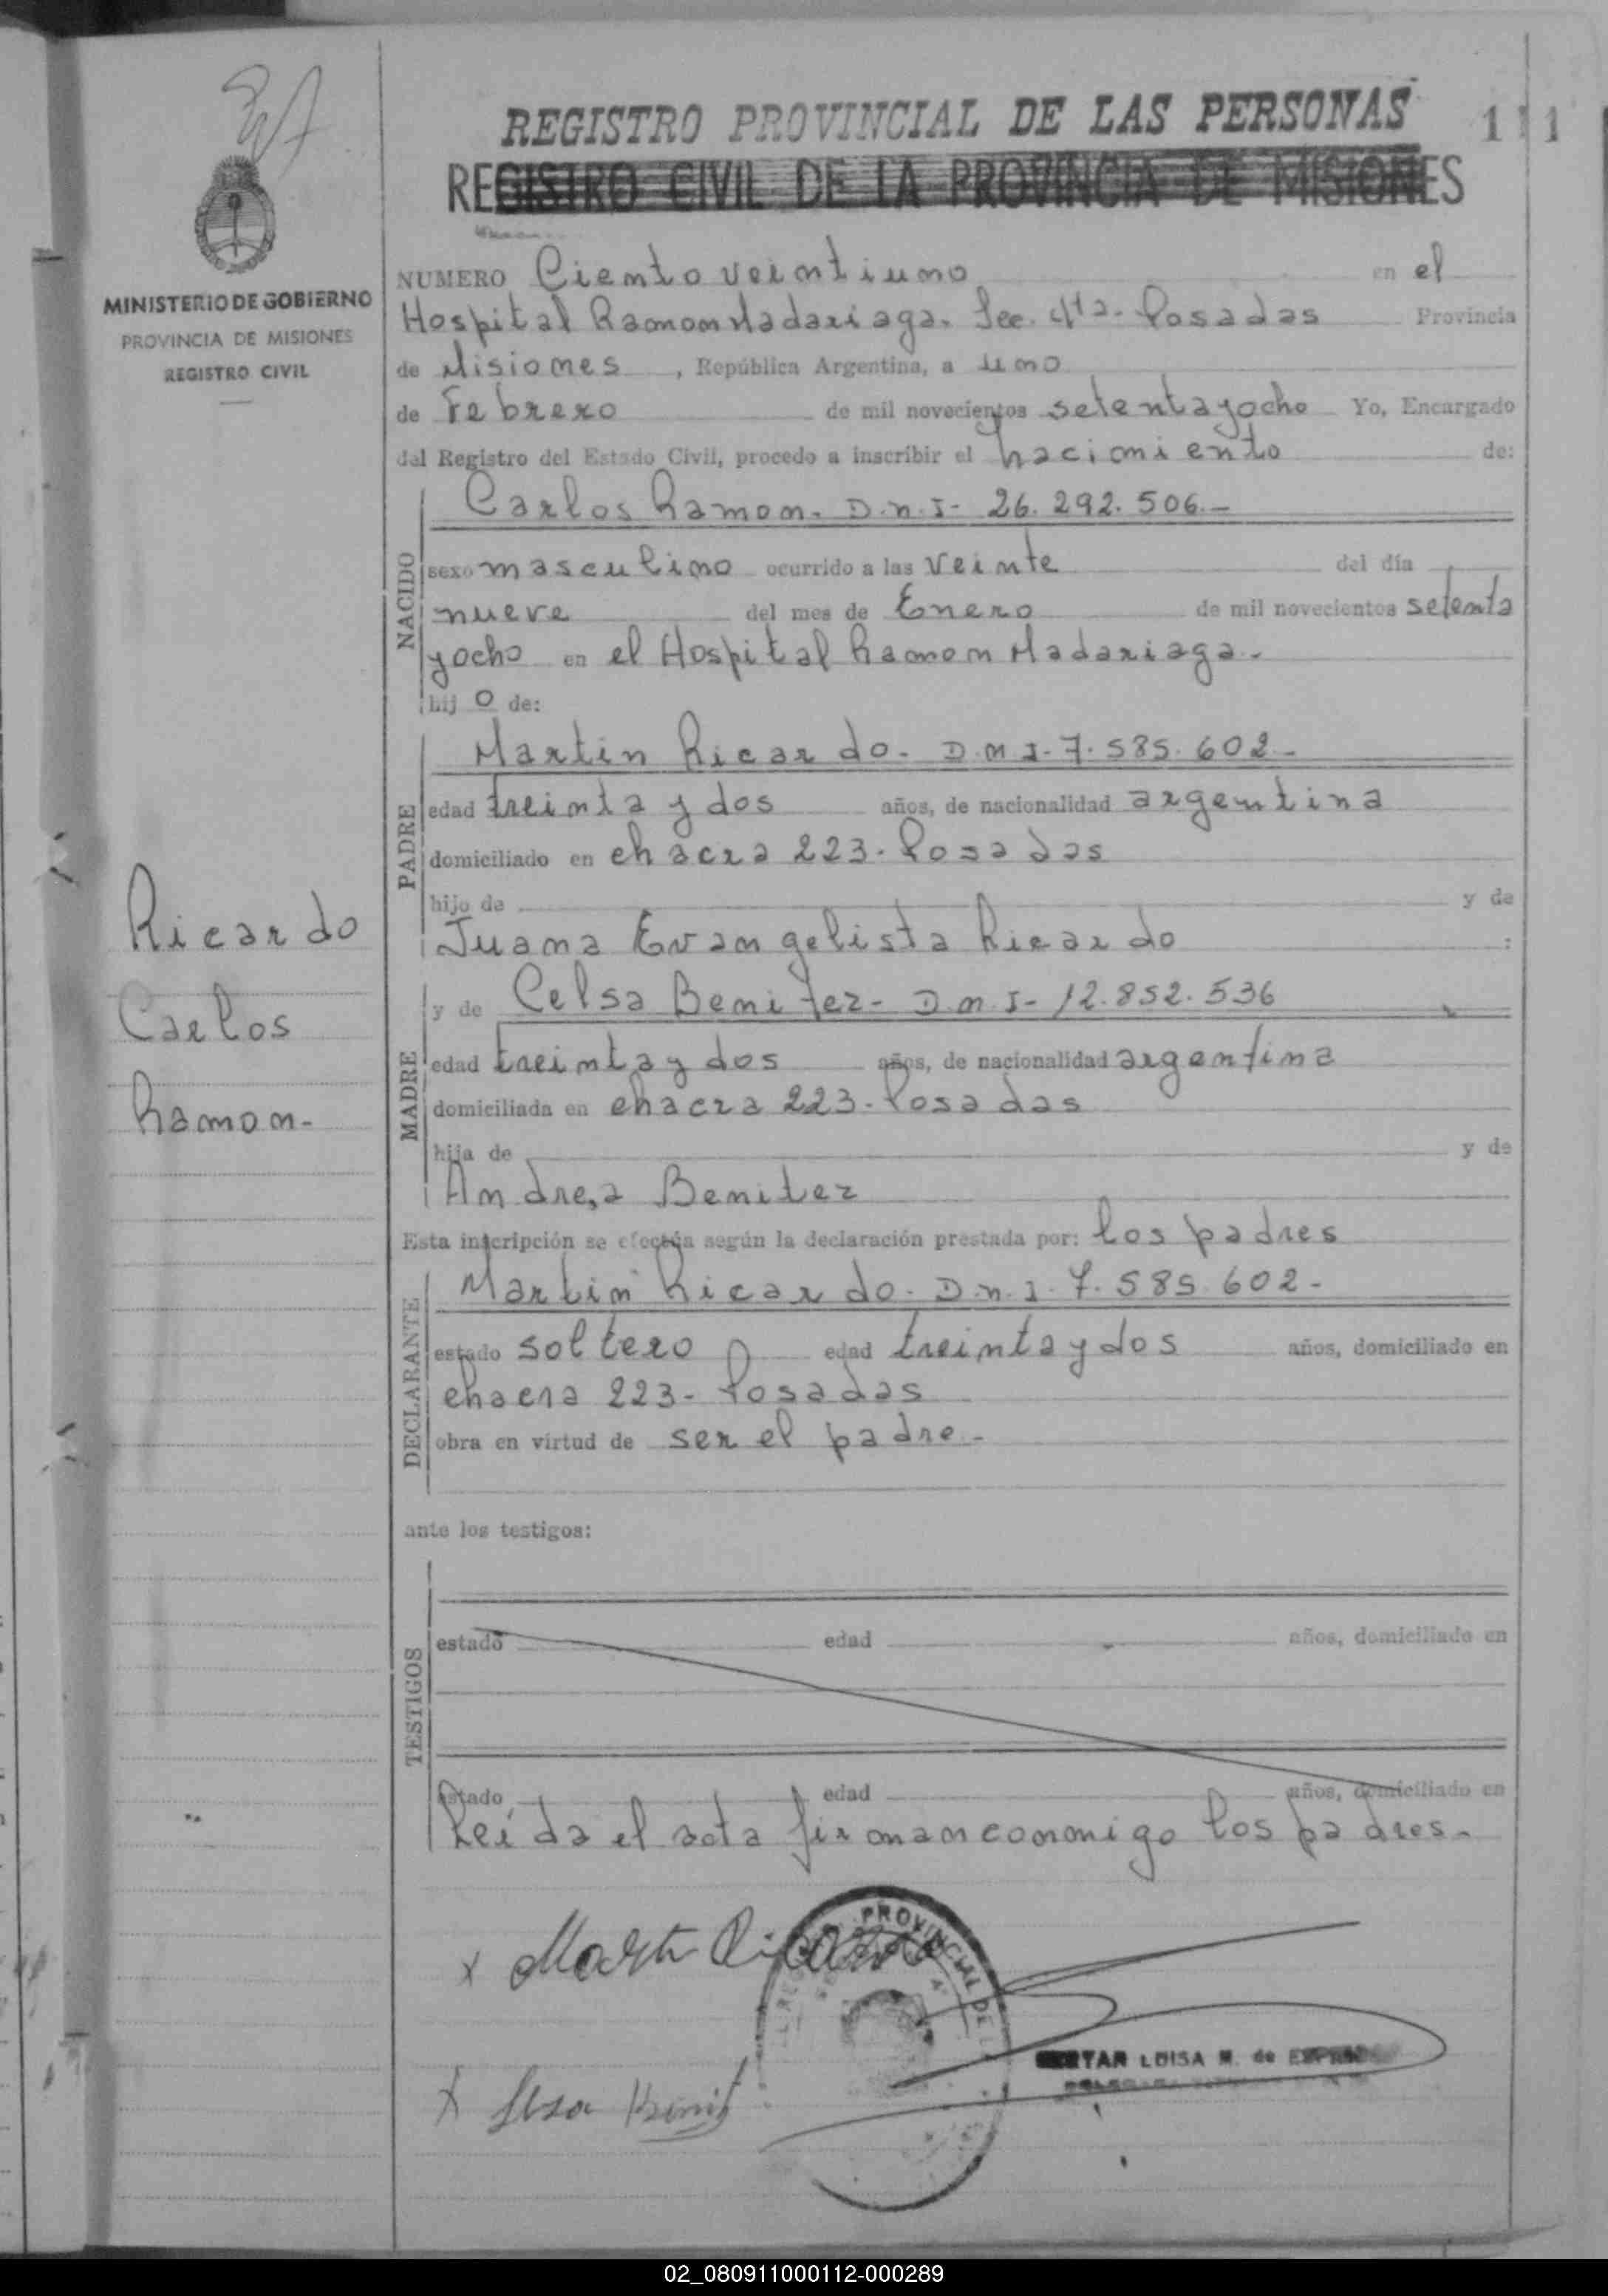 REGISTRO PROVINCIAL DE LAS PERSONAS
111
REGISTRO CIVIL DE LA PROVINCIA DE MISIONES
MINISTERIO DE GOBIERNO
PROVINCIA DE MISIONES
REGISTRO CIVIL
NUMERO Ciento veintiuno en el
Hospital Ramon Madariaga. Sec. 4ta- Posadas Provincia
de Misiones, República Argentina, a uno
de Febrero de mil novecientos setentayocho Yo, Encargado
del Registro del Estado Civil, procedo a inscribir el nacimiento de:
NACIDO
Carlos Ramon. D.n.I- 26.292.506.-
sexo masculino ocurrido a las veinte del día
nueve del mes de Enero de mil novecientos setenta
yocho en el Hospital Ramon Madariaga.
hij o de:
PADRE
Martin Ricardo. D.n.I-7.585.602-
edad treinta y dos años, de nacionalidad argentina
domiciliado en chacra 223. Posadas
hijo de y de
Juana Evangelista Ricardo :
MADRE
y de Celsa Benitez- D.n.I- 12.852.536
edad treinta y dos años, de nacionalidad argentina
domiciliada en chacra 223. Posadas
hija de y de
Andrea Benitez
Ricardo
Carlos
Ramon-
Esta inscripción se efectúa según la declaración prestada por: los padres
DECLARANTE
Martin Ricardo. D.n.I. 7.585.602-
estado soltero edad treinta y dos años, domiciliado en
chacra 223- Posadas
obra en virtud de ser el padre-
ante los testigos:
TESTIGOS
estado edad años, domiciliado en
estado edad años, domiciliado en
Leída el acta firman conmigo los padres-
x Martin Ricardo
PROVINCIAL DE
LUISA M. de
x
02_080911000112-000289